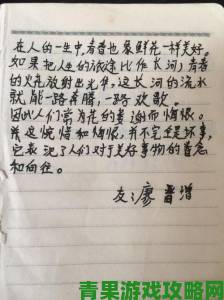 在人的一生中,青春也象鲜花一样美好。
如果把人生的旅途比作长河,青春
的火花放射出光华,这长河的流水
就能一路奔腾,一路欢歌。
因此人们常为花的凋谢而惋惜。
并这惋惜和悔恨,并不完全是坏事,
它表现了人们对于美好事物的眷恋
和向往。
友:廖晋增
青果游戏攻略网
www.qingguo.com